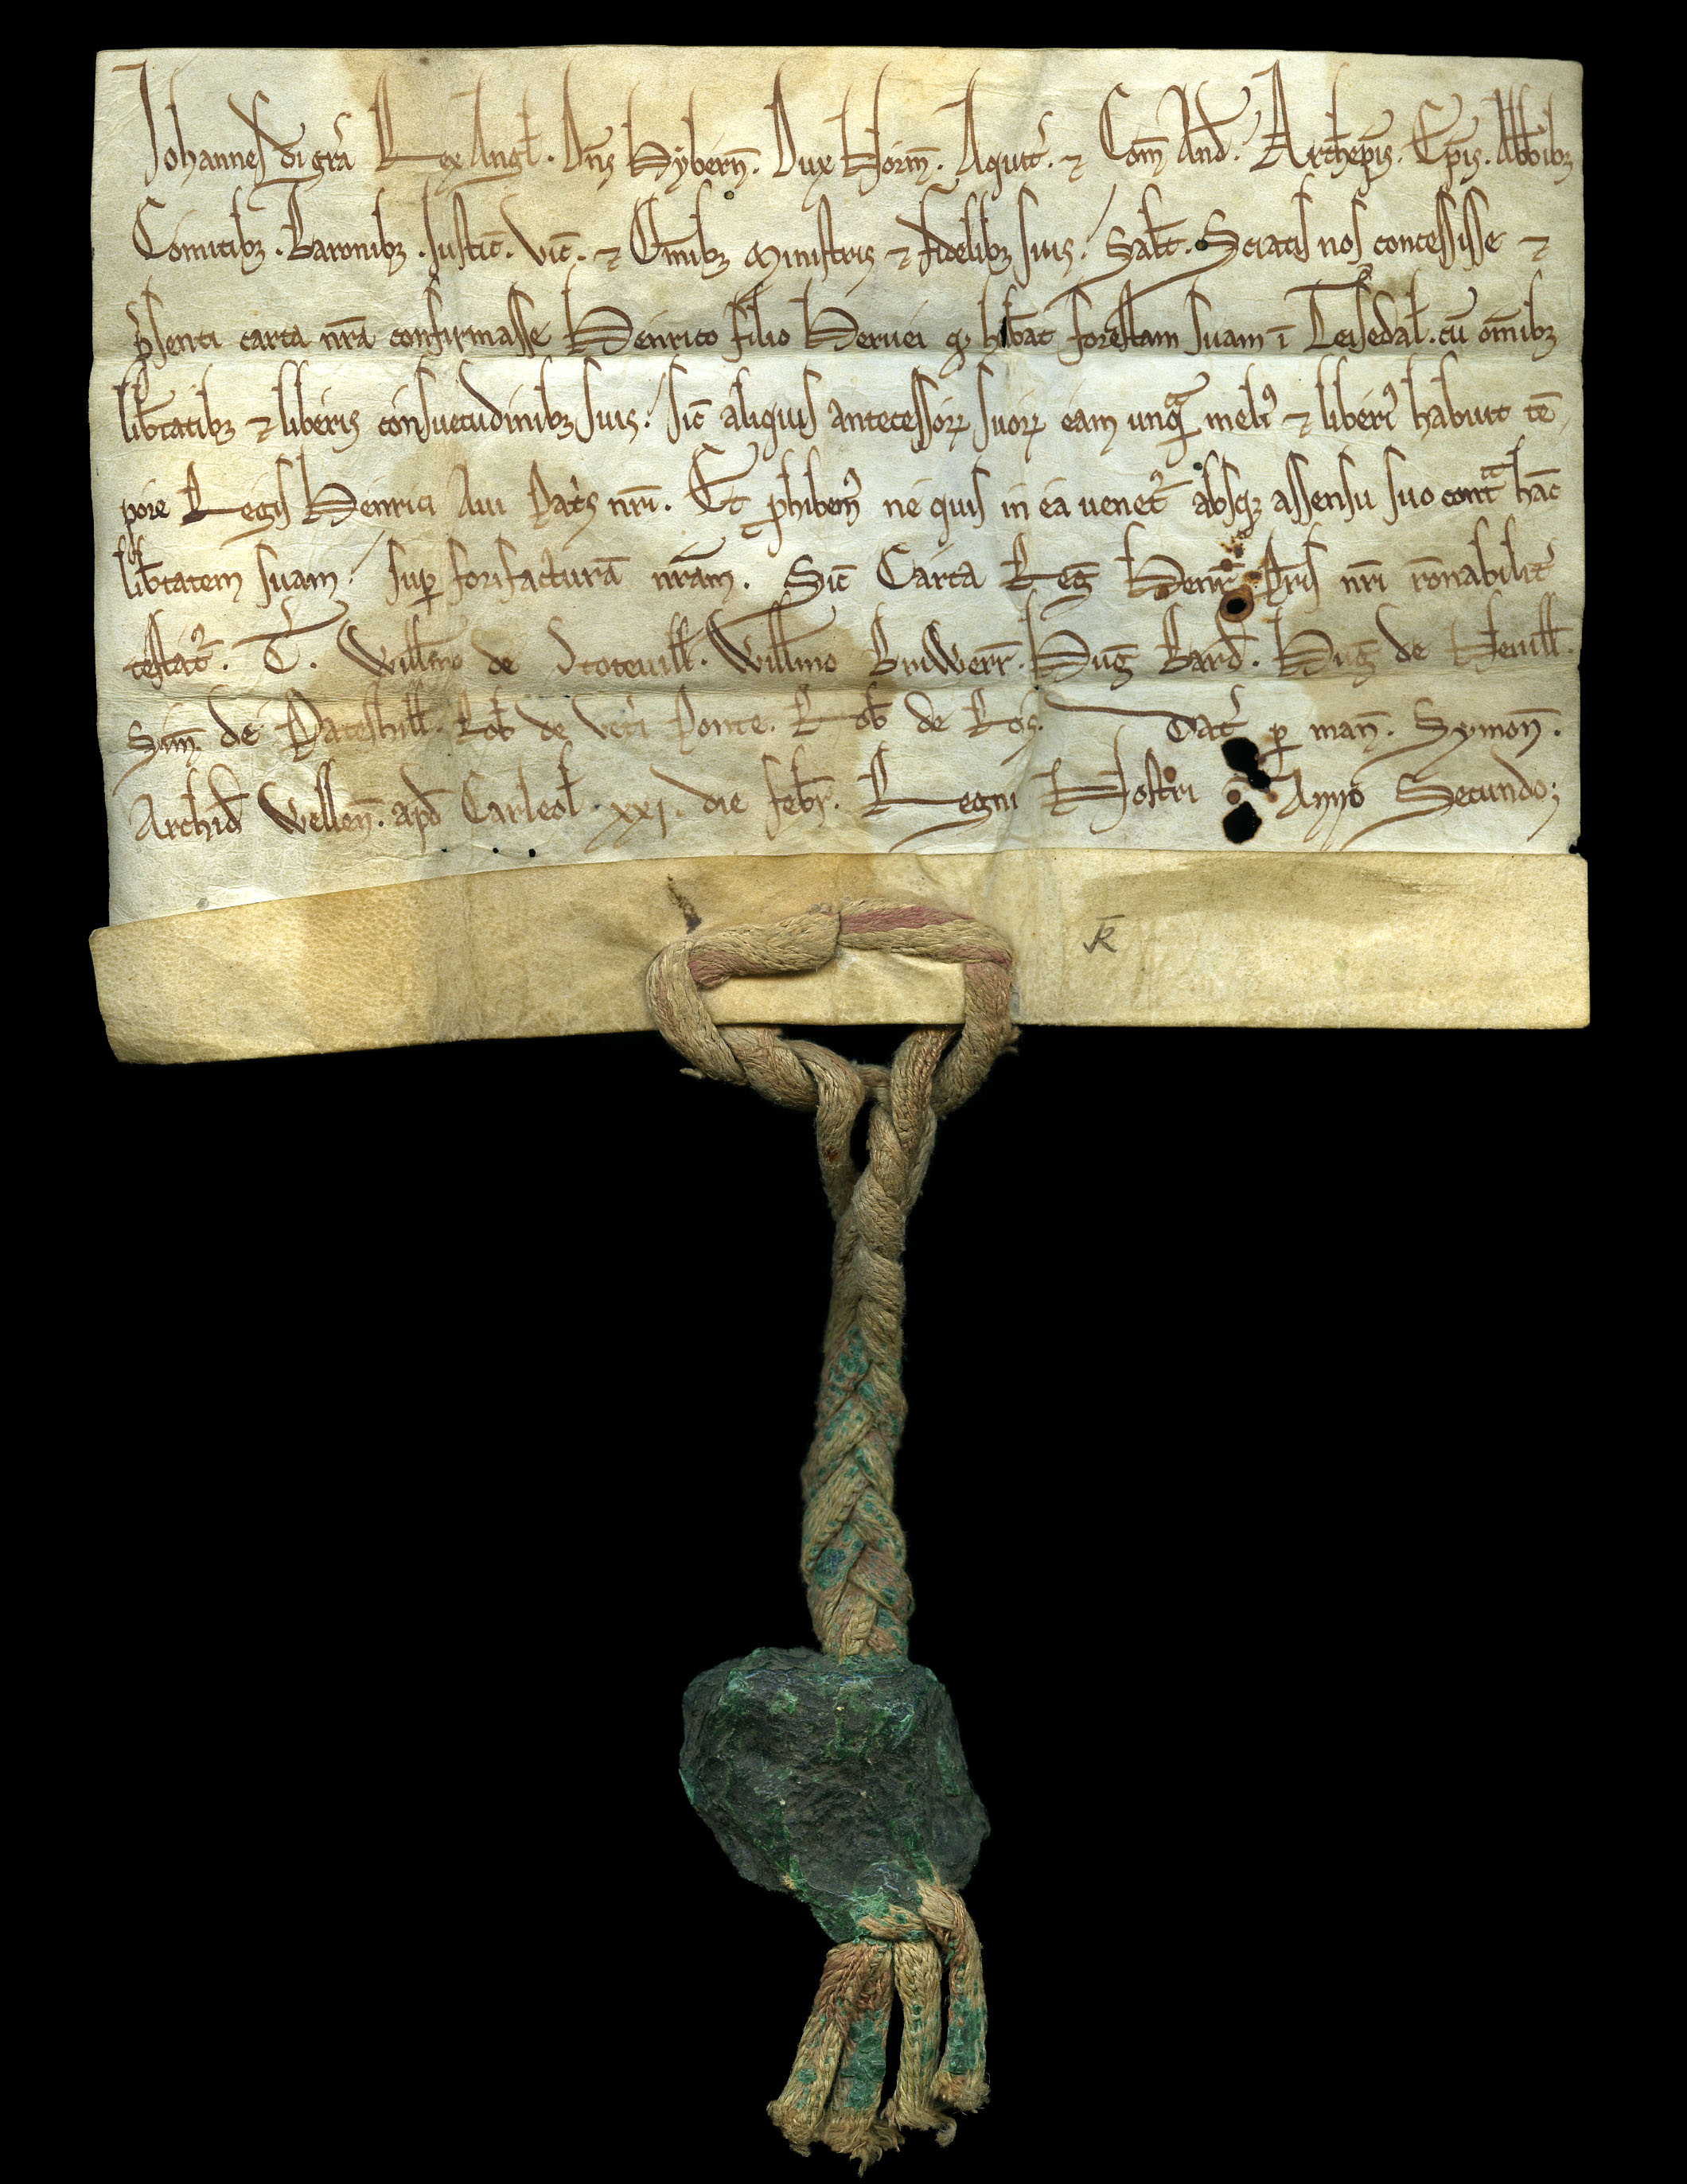 Johannes di gr̄a Rex Angl̄. Dn̄s Hybern̄. Dux Norm̄. Aquit̄. ⁊ Com̄ And̄. Archiep̄is. Ep̄is. Abb̄ibꝫ
Comitibꝫ. Baronibꝫ. Justic̄. Vic̄. ⁊ Om̄ibꝫ Ministris ⁊ fidelibꝫ suis. Salt̄. Sciatis nos concessisse ⁊
p̄senti carta nr̄a confirmasse Henrico filio Heruei qd̄ hab̄at forestam suam ī Teisedal̄. cū om̄ibꝫ
lib̄tatibꝫ ⁊ liberis consuetudinibꝫ suis. sic̄ aliquis antecessoꝝ suoꝝ eam unqᵃm meliꝰ ⁊ liberiꝰ habuit tē
pore Regis Henrici Aui Pat̄s nr̄i. Et ꝓhibemꝰ ne quis in ea uenet̄ absqꝫ assensu suo contᵃ hāc
lib̄tatem suam. suꝑ forisfacturā nr̄am. Sic̄ Carta Reg̃ Henr̄ Pr̄is nr̄i r̄onabilit̄
testatᷣ. T. Will̄mo de Stoteuill̄. Will̄mo Briwerr̄. Hug̃ Bard̄. Hug̃ de Neuill̄.
Sim̄ de Pateshill̄. Rob̄ de Vet̄i Ponte. Rob̄ de Ros. Dat̄ ꝑ man̄. Symon̄.
Archid̄ Wellen̄. apd̄ Carleol̄ xxj. die febr̄. Regni Nostri Anno Secundo;